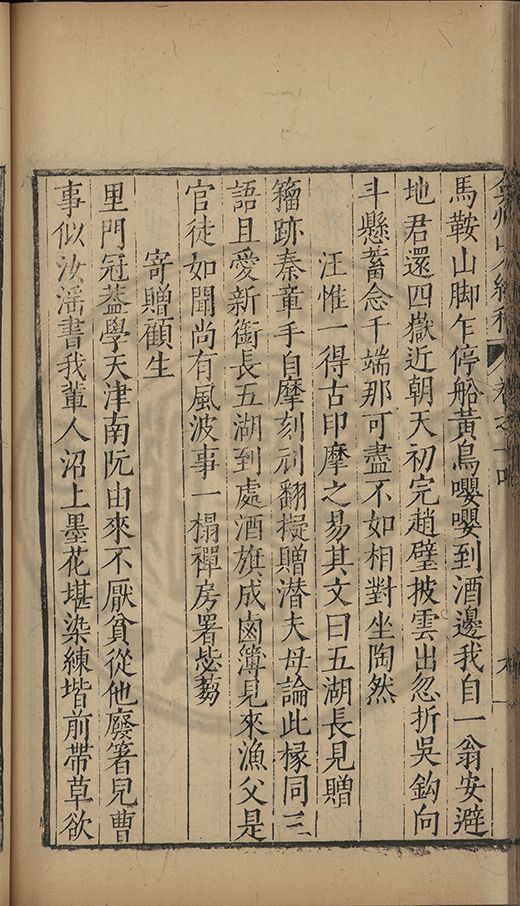 弇州山人續稿 卷之
馬鞍山脚乍停船黃鳥嚶嚶到酒邊我自一翁安避
地君還四嶽近朝天初完趙璧披雲出忽折吳鈎向
斗懸蓄念千端那可盡不如相對坐陶然
汪惟一得古印摩之易其文曰五湖長見贈
籀跡秦章手自摩刻刓翻擬贈潜夫母論此椽同三
語且愛新銜長五湖到處酒旗成鹵簿見來漁父是
官徒如聞尚有風波事一榻禪房署苾蒭
寄贈顧生
里門冠葢學天津南阮由來不厭貧從他廢箸兒曹
事似汝滛書我輩人沼上墨花堪染練堦前帶草欲